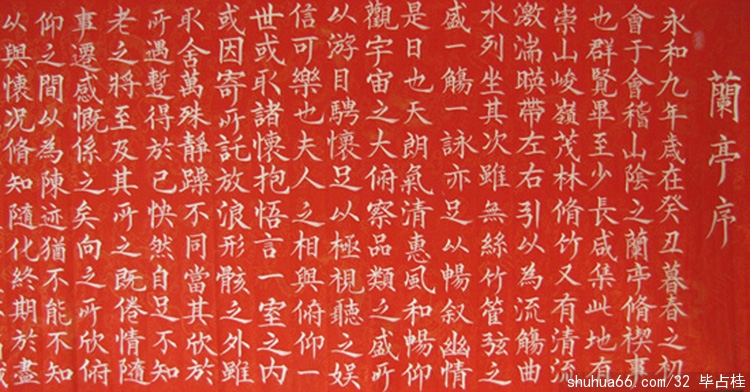 蘭亭序
永和九年歲在癸丑暮春之初
會于會稽山陰之蘭亭脩禊事
也群賢畢至少長咸集此地有
崇山峻嶺茂林脩竹又有清流
激湍暎帶左右引以為流觴曲
水列坐其次雖無絲竹管弦之
盛一觴一詠亦足以暢叙幽情
是日也天朗氣清惠風和暢仰
觀宇宙之大俯察品類之盛所
以游目騁懷足以極視聽之娱
信可樂也夫人之相與俯仰一
世或取諸懷抱悟言一室之内
或因寄所託放浪形骸之外雖
取舍萬殊静躁不同當其欣於
所遇暫得於己快然自足不知
老之將至及其所之既倦情隨
事遷感慨係之矣向之所欣俯
仰之間以為陳迹猶不能不知
以興懷况脩知隨化終期於盡
shuhua66.com/32 毕占桂